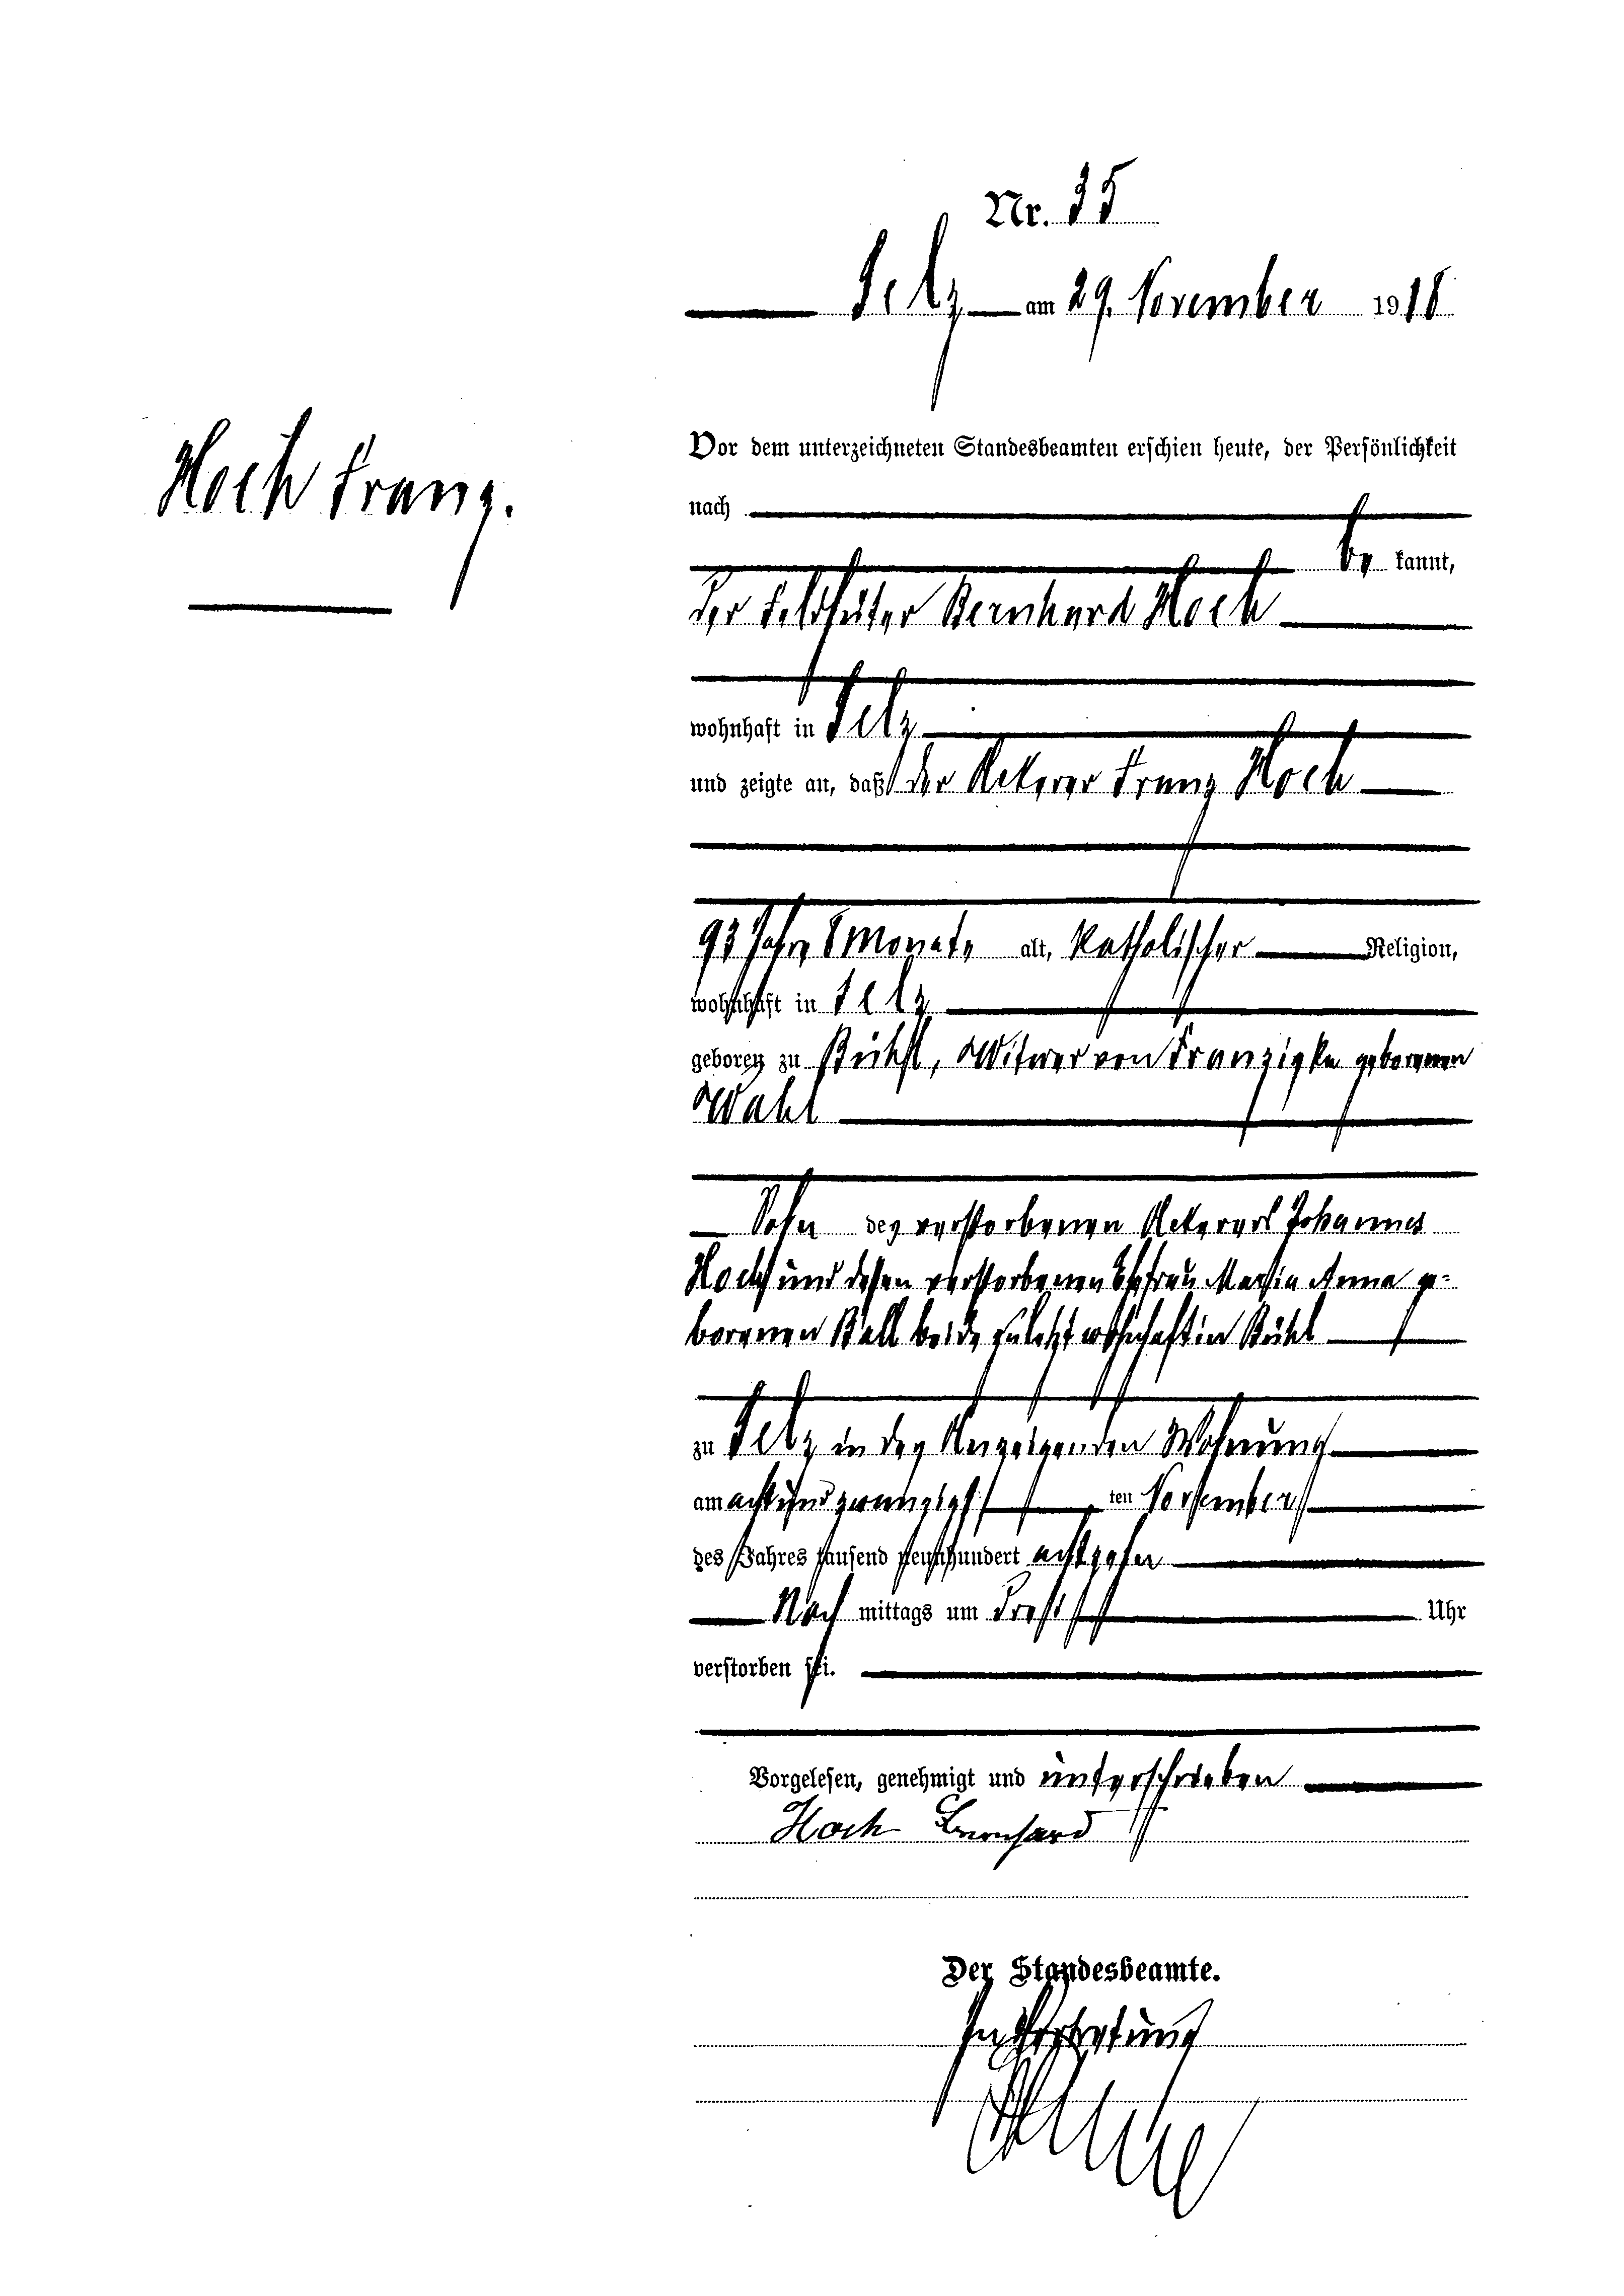 Nr. 35
Selz am 29. November 1918
Hoch Franz.
Vor dem unterzeichneten Standesbeamten erschien heute, der Persönlichkeit
nach
be kannt,
der Feldhüter Bernhard Hoch
wohnhaft in Selz
und zeigte an, daß der Ackerer Franz Hoch
93 Jahre 8 Monate alt, katholischer Religion,
wohnhaft in Selz
geboren zu Bühl, Witwer von Franziska geborenen
Wahl
Sohn des verstorbenen Ackerers Johannes
Hoch und dessen verstorbenen Ehefrau Maria Anna ge-
borenen Ball beide zuletzt wohnhaft in Bühl
zu Selz in des Anzeigenden Wohnung
am achtundzwanzigs ten November
des Jahres tausend neunhundert achtzehn
Nach mittags um Drei Uhr
verstorben sei.
Vorgelesen, genehmigt und unterschrieben
Hoch Bernhard
Der Standesbeamte.
In Vertretung